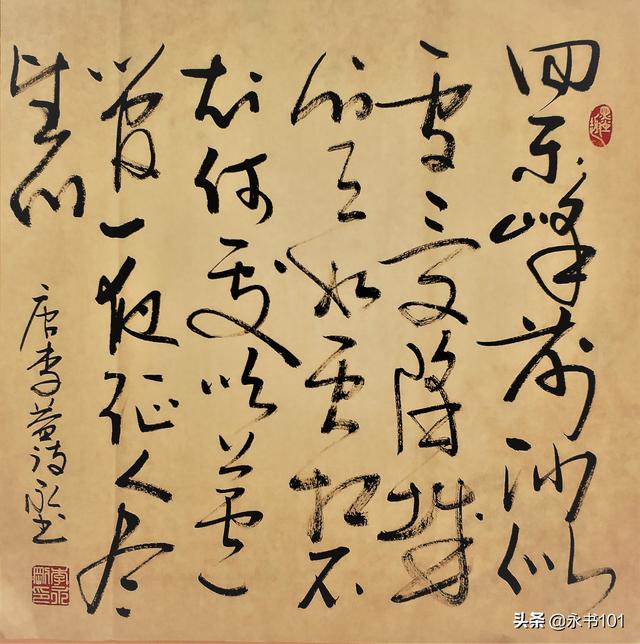 回乐峰前沙似
雪受降城
外月如霜不
知何处吹芦
管一夜征人尽
望乡
唐李益诗永书
头条 @永书101